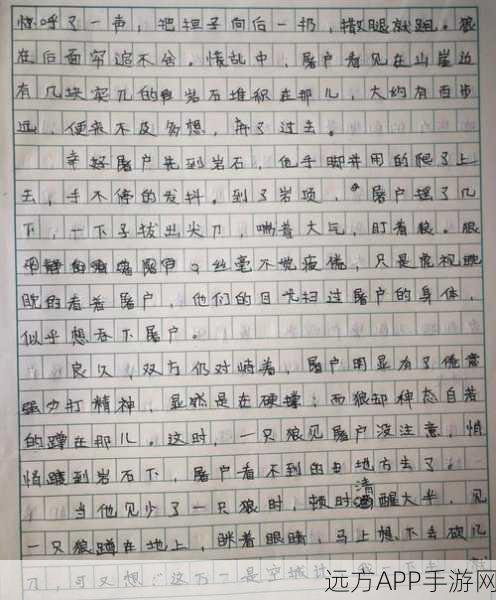 惊呼了一声，把担子向后一扔，撒腿就跑。狼
在后面穷追不舍。慌乱中，屠户看见在山崖边
有几块突兀的岩石堆积在那儿，大约有百步
远，便来不及多想，奔了过去。
幸好屠户先到岩石，他手脚并用的爬了上
去，手不停的发抖。到了岩顶，屠户摇了几
下，一下子拔出尖刀，喘着大气，盯着狼。狼
丝毫不觉疲倦，只是虎视眈
眈的看着屠户，他们的目光扫过屠户的身体，
似乎想吞下屠户。
良久，双方仍对峙着，屠户明显有了倦意
强力打精神，显然是在硬撑；而狼却神态自若
的蹲在那儿。这时，一只狼见屠户没注意，悄
悄踱到岩石下，屠户看不到的地方去了。
当他见少了一只狼时，顿时清醒大半，见
一只狼蹲在地上，眯着眼睛，马上想下去砍几
刀，可又想：“这万一是空城计，我一下去，
远方APP手游网